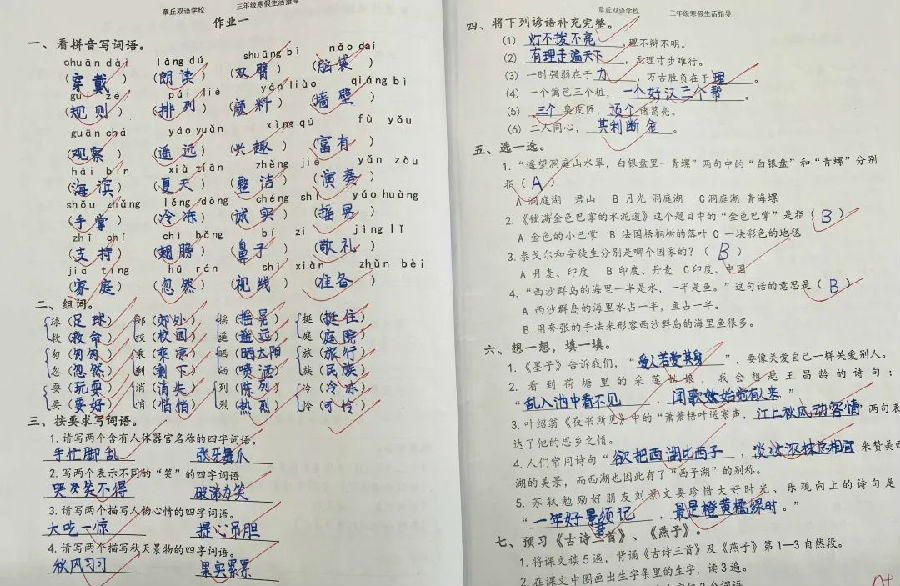 章丘双语学校 三年级寒假生活指导
作业一
一、看拼音写词语。
chuān dài lǎng dú shuāng bì nǎo dai
(穿戴) (朗读) (双臂) (脑袋)
guī zé pái liè yán liào qiáng bì
(规则) (排列) (颜料) (墙壁)
guān chá yáo yuǎn xìng qù fù yǒu
(观察) (遥远) (兴趣) (富有)
hǎi bīn xià tiān zhěng jié yǎn zòu
(海滨) (夏天) (整洁) (演奏)
shǒu zhǎng lěng dòng chéng shí yáo huàng
(手掌) (冷冻) (诚实)
zhī chí chì bǎng bí zi jìng lǐ
(支持) (翅膀) (鼻子) (敬礼)
jiā tíng hū rán shì xiàn zhǔn bèi
(家庭) (忽然) (视线) (准备)
二、组词。
(足球) 郊(郊外) 摇(摇晃) 挺(挺住)
救(救命) 校(校园) 遥(遥远) 庭(庭院)
匆(匆匆) 乘(乘凉) 晒(晒太阳) 旅(旅行)
忽(忽然) 剩(剩下) 洒(喷洒) 族(民族)
耍(玩耍) 消(消失) 列(陈列) 冷(冷冻)
要(要好) 悄(悄悄) 烈(热烈) (可怜)
三、按要求写词语。
1. 请写两个含有人体器官名称的四字词语。
手忙脚乱 张牙舞爪
2. 写两个表示不同的“笑”的四字词语
哭笑不得 破涕为笑
3. 请写两个描写人物心情的四字词语。
大吃一惊 提心吊胆
4. 请写两个描写秋天景物的四字词语。
秋风习习 果实累累
章丘双语学校 三年级寒假生活指导
四、将下列谚语补充完整。
(1) 灯不拨不亮，理不辩不明。
(2) 有理走遍天下，无理寸步难行。
(3) 一时强弱在于力，万古胜负在于理。
(4) 一个篱笆三个桩，一个好汉三个帮。
(5) 三个臭皮匠，顶个诸葛亮。
(6) 二人同心，其利断金。
五、选一选。
1. “遥望洞庭山水翠，白银盘里一青螺”两句中的“白银盘”和“青螺”分别
指（A）
A 洞庭湖 君山 B 月光 洞庭湖 C 洞庭湖 青海螺
2. 《铺满金色巴掌的水泥道》这个题目中的“金色巴掌”是指（B）
A 金色的小巴掌 B 法国梧桐树的落叶 C 一块彩色的地毯
3. 泰戈尔和安徒生分别是哪个国家的？（B）
A 丹麦、印度 B 印度、丹麦 C 印度、中国
4. “西沙群岛的海里一半是水，一半是鱼。”这句话的意思是（B）
A 西沙群岛的海里水占一半，鱼占一半。
B 用夸张的手法来形容西沙群岛的海里鱼很多。
六、想一想，填一填。
1. 《墨子》告诉我们，“爱人若爱其身”，要像关爱自己一样关爱别人。
2. 看到荷塘里的采莲姑娘，我会想起王昌龄的诗句：
“乱入池中看不见，闻歌始觉有人来”
3. 叶绍翁《夜书所见》中的“萧萧梧叶送寒声，江上秋风动客情”两句表
达了他的思乡之情。
4. 人们常用诗句“欲把西湖比西子，淡妆浓抹总相宜”来赞美西
湖的美景，而西湖也因此有了“西子湖”的别称。
5. 苏轼勉励好朋友刘景文要珍惜大好时光、乐观向上的诗句是
“一年好景须记，最是橙黄橘绿时。”
七、预习《古诗三首》、《燕子》。
1. 将课文读5遍，背诵《古诗三首》及《燕子》第1—3自然段。
2. 在课文中圈画出生字条里的生字，读3遍。